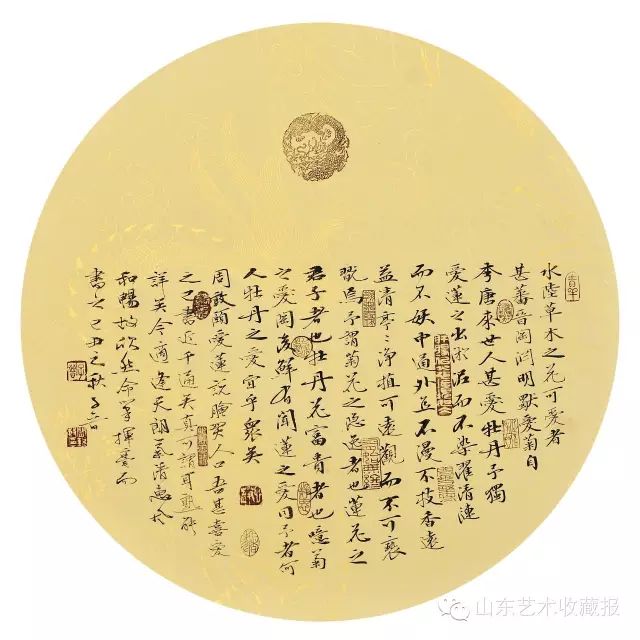 水陸草木之花可愛者
甚蕃晉陶淵明獨愛菊自
李唐來世人甚愛牡丹予獨
愛蓮之出淤泥而不染濯清漣
而不妖中通外直不漫不枝香遠
益清亭〻淨植可遠觀而不可褻
翫焉予謂菊花之隱逸者也蓮花之
君子者也牡丹花富貴者也噫菊
之愛陶後鮮有聞蓮之愛同予者何
人牡丹之愛宜乎衆矣
周敦頤愛蓮說膾炙人口吾甚喜愛
之已書近千通矣真可謂耳熟能
詳矣今適逢天朗氣清惠風
和暢故欣然命筆揮毫而
書之己丑之秋
山东艺术收藏报